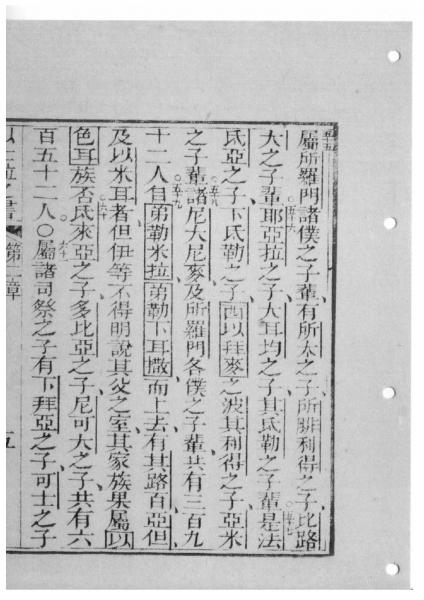 五十五屬所羅門諸僕之子輩有所太之子所腓利得之子比路
大之子輩五十六耶亞拉之子大耳均之子其氐勒之子輩五十七是法
氐亞之子下氐勒之子西以拜麥之波其利得之子亞米
之子輩五十八諸尼大尼麥及所羅門各僕之子輩共有三百九
十二人五十九自弟勒米拉弟勒下耳撒而上去有其路百亞但
及以米耳者但伊等不得明說其父之室其家族果屬以
色耳族否六十氐來亞之子多比亞之子尼可大之子共有六
百五十二人○六十一屬諸司祭之子有下拜亞之子可士之子
以士拉之書 第二章 五